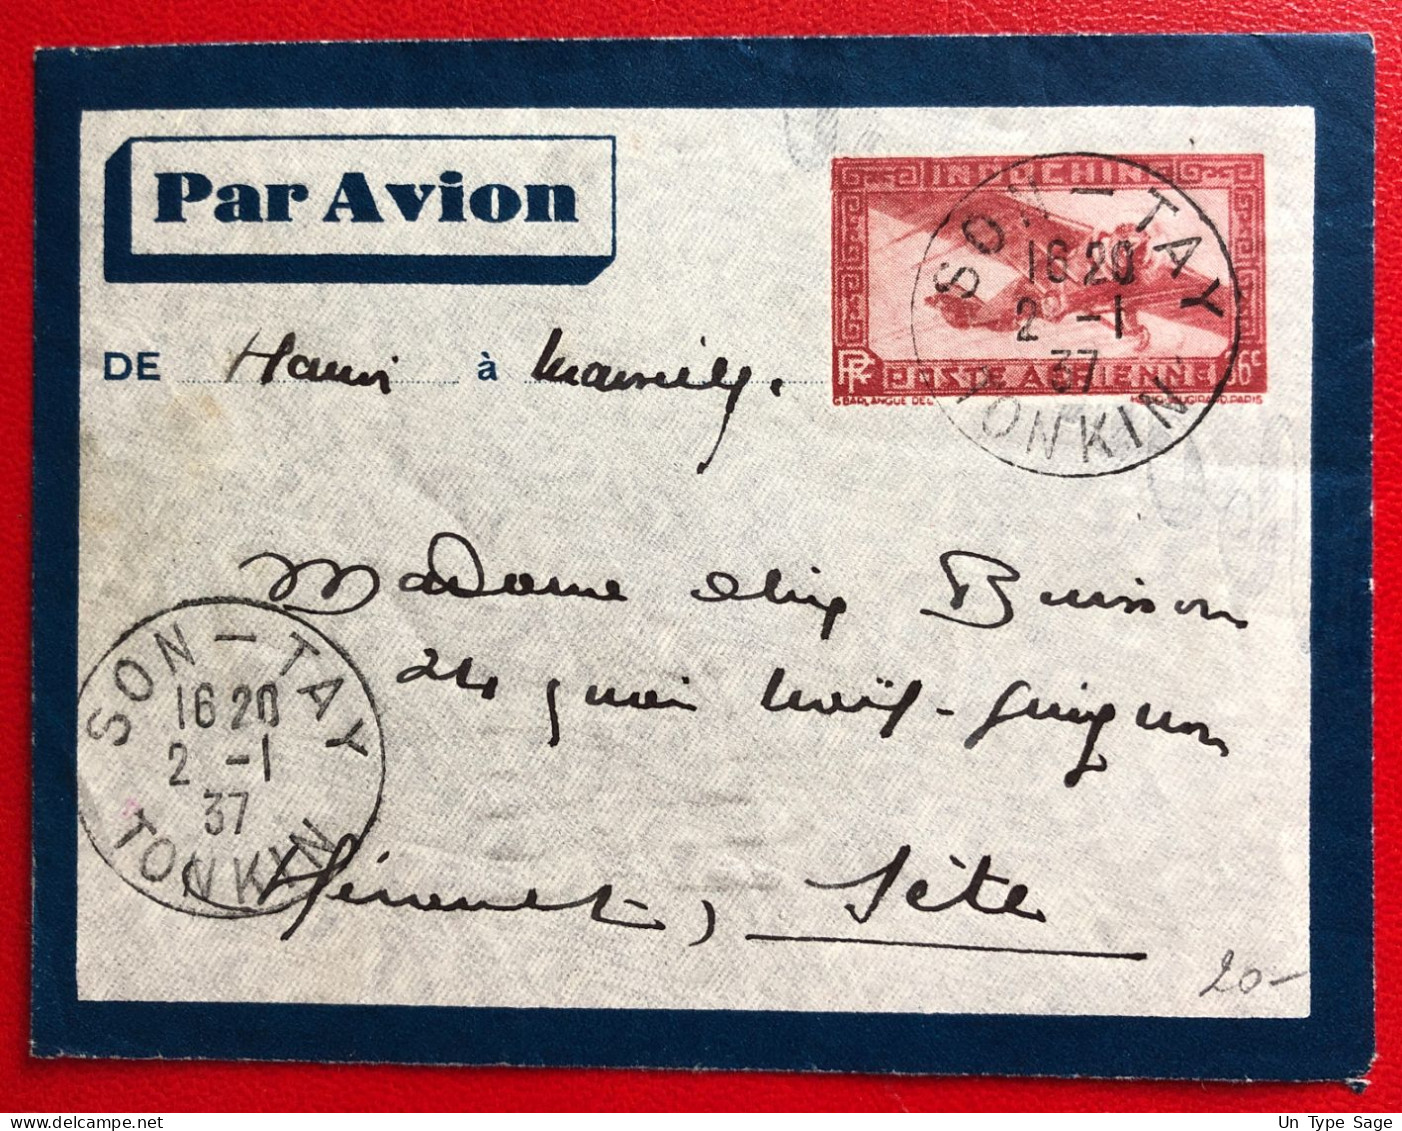 Par Avion
INDOCHINE
SON-TAY
16 20
2 -1
37
TONKIN
RF POSTE AÉRIENNE 36c
G BARLANGUE DEL
DE Hanoi à Marseille.
Madame Buisson
24 quai Noël-Guignon
SON-TAY
16 20
2 -1
37
TONKIN
(Hérault), Sète
20-
Un Type Sage